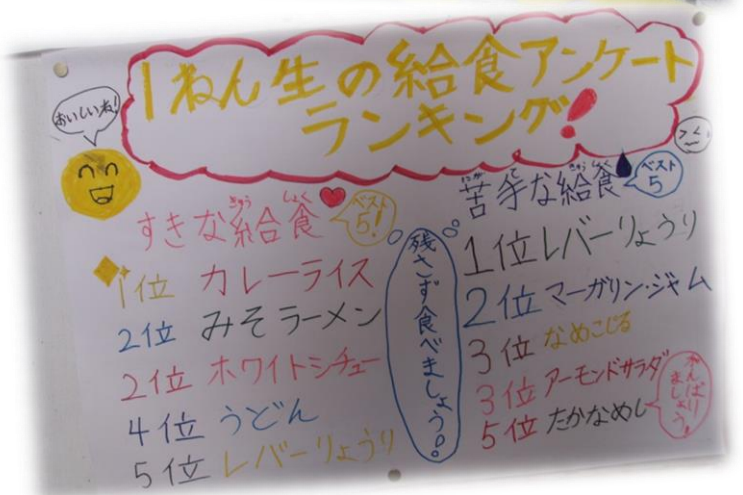 1ねん生の給食アンケート
ランキング!
おいしいね!
すきな給食
きゅう しょく
ベスト5!
1位 カレーライス
2位 みそラーメン
2位 ホワイトシチュー
4位 うどん
5位 レバーりょうり
残さず食べましょう!。
苦手な給食
にが て きゅう しょく
ベスト5
1位 レバーりょうり
2位 マーガリン・ジャム
3位 なめこじる
3位 アーモンドサラダ
5位 たかなめし
がんばりましょう!